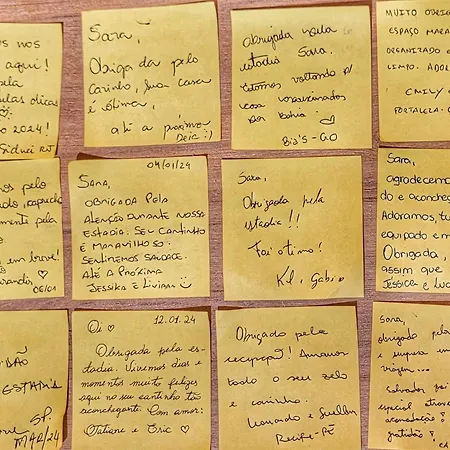 nos
aqui!
pela
dicas
2024!
Sidnei RJ
Sara,
Obrigada pelo
carinho, sua casa
é ótima,
até a próxima
Beia :)
Obrigada pela
estadia Sara.
Estamos voltando p/
casa apaixonadas
por Bahia
Bia's - GO
MUITO OBRIG
ESPAÇO MARA
ORGANIZADO E
LIMPO. ADOR
EMILY
FORTALEZA-
pelo
capricho
pela
em breve!
06/01
04/01/24
SARA,
OBRIGADA PELA
ATENÇÃO DURANTE NOSSA
ESTADIA. SEU CANTINHO
É MARAVILHOSO.
SENTIREMOS SAUDADE.
ATÉ A PRÓXIMA
JESSIKA E LIVIAN
Sara,
Obrigada pela
estadia!!
Foi ótimo!
Kel e Gabi
Sara,
agradecemos
do e aconcheg
Adoramos, tu
equipado e m
Obrigada,
assim que
Jéssica e Luc
DÃO
ESTADIA
SP.
MAR/24
12.01.24
Oi ♡
Obrigada pela es-
tadia. Vivemos dias e
momentos muito felizes
aqui no seu cantinho tão
aconchegante. Com amor:
Tatiane e Eric ♡
Obrigado pela
recepção! Amamos
todo o seu zelo
e carinho.
Leonardo e Suellen
Recife-PE
Sara,
obrigada pela
e
viagem...
Salvador foi
especial atrav
acomodação!
gratidão!